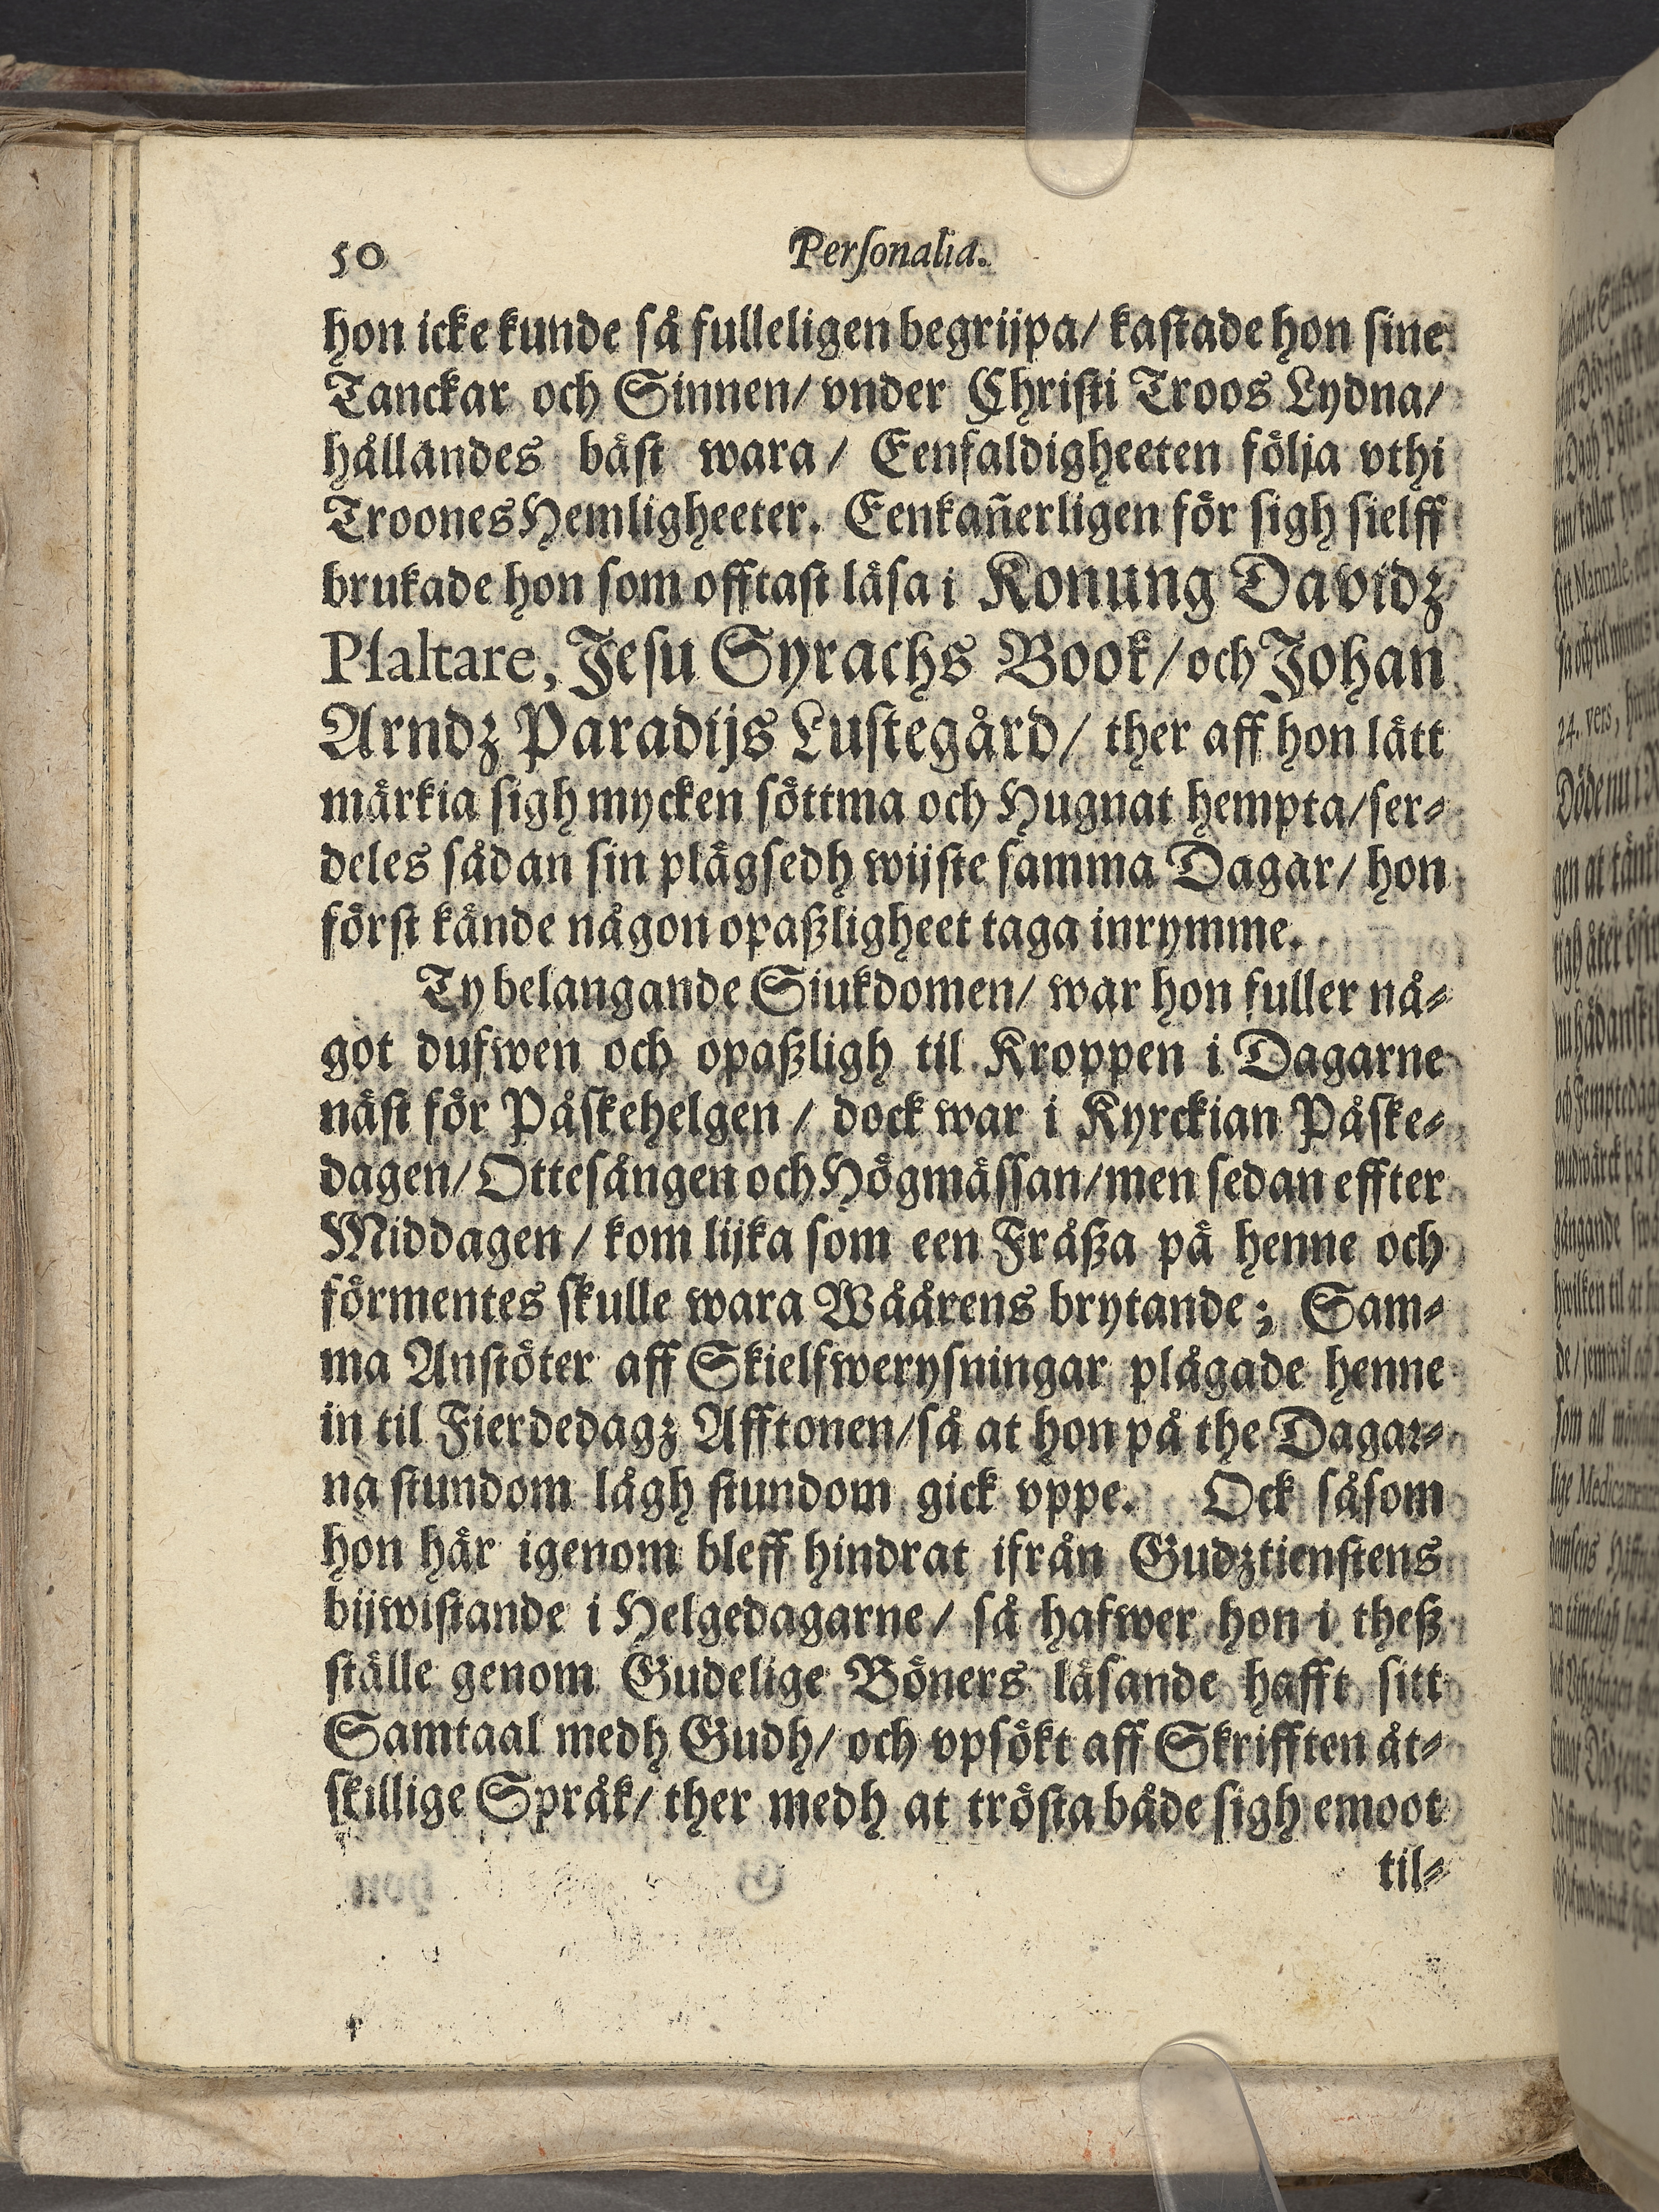 50
Perſonalia.
hon icke kunde så fulleligen begrijpa/ kaſtade hon sine
Tanckar och Sinnen/ vnder Chriſti Troos Lydna/
hållandes bäſt wara/ Eenfaldigheeten följa vthi
Troones Hemligheeter. Eenkañerligen för sigh sielff
brukade hon ſom offtaſt läſa i Konung Davidz
Pſaltare, Jeſu Syrachs Book/ och Johan
Arndz Paradijs Luſtegård/ ther aff hon lätt
märkia ſigh mycken ſöttma och Hugnat hempta/ ſer⸗
deles sådan ſin plägsedh wijſte ſamma Dagar/ hon
förſt kände någon opaßligheet taga inrymme.
Ty belangande Siukdomen/ war hon fuller nå⸗
got dufwen och opaßligh til Kroppen i Dagarne
näſt för Påſkehelgen/ dock war i Kyrckian Påſke⸗
dagen/ Otteſången och Högmäſſan/ men ſedan effter
Middagen/ kom lijka ſom een Fråßa på henne och
förmentes ſkulle wara Wåårens brytande; Sam⸗
ma Anſtöter aff Skielfweryſningar plågade henne
in til Fierdedagz Afftonen/ så at hon på the Dagar⸗
na ſtundom lågh ſtundom gick vppe. Ock såſom
hon här igenom bleff hindrat ifrån Gudztienſtens
bijwiſtande i Helgedagarne/ så hafwer hon i theß
ſtälle genom Gudelige Böners läſande hafft sitt
Samtaal medh Gudh/ och vpſökt aff Skrifften åt⸗
ſkillige Språk/ ther medh at tröſta både ſigh emoot
til⸗